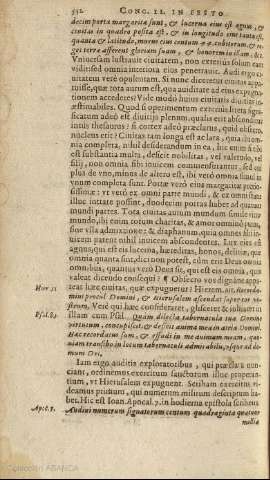 552 CONC. II. IN FESTO
decim porta margarita sunt, & lucerna eius est agnus, &
ciuitas in quadro posita est, & in longitudo eius tanta est,
quanta & latitudo, murus eius centum 44. cubitorum, & re-
ges terræ afferent gloriam suam, & honorem in illam. &c.
Vniuersam lustrauit ciuitatem, non exterius solum eam
vidit sed omnia interiora eius penetrauit. Audi ergo ci-
uitatem verè opulentam. Si nunc diceretis ciuitas appa-
ruisse, quæ tota aurum est, qua auiditate ad eius expugna-
tionem accederes? Vide modo huius ciuitatis diuitias in-
æstimabiles. Quod si operimentum exterius litera signi-
ficatum adeò est diuitijs plenum, qualis erit absconditus
intùs thesaurus? si cortex adeò præclarus, quid abscon.
nucleus erit? Ciuitas tam longa est ac lata, quia ibi om-
nia completa, nihil desiderandum in ea, hic enim si ibi
est substantia multa, deficit nobilitas, vel valetudo, vel
filij, non omnia sibi inuicem commensurantur, sed
plus de vno, minus de altero est, ibi verò omnia simul in
vnum completa sunt. Portæ verò eius margaritæ pretio-
sissimæ: vt verò ex omni parte mundi, & ex omni statu
illuc intrare possint, duodecim portas habet ad quatuor
mundi partes. Tota ciuitas aurum mundum simile vitro
mundo, ibi enim totum charitas, & amor omninò purus,
sine vlla admixtione: & diaphanum, quia omnes alij
uicem patent nihil inuicem abscondentes. Lux eius est
agnus, qui est eis lucerna, hæreditas, honos, deliciæ, quæ
omnia quanta sint, dici non potest, cùm eis Deus omnia in
omnibus, quantus verò Deus sit, qui est eis omnia, quis
valeat dicendo consequi? ¶ Obiecro vos dignáne appa-
reat hæc ciuitas, quæ expugnetur? Hierem. 51. Recorda-
Hier. 51
mini procul Domini, & Hierusalem ascendat super cor ve-
strum. Verè qui hæc consideraret, gliscéret & posset in
Psal. 83.
illam cum Psal. Quàm dilecta tabernacula tua Domine
virtutum, concupiscit, & deficit anima mea in atria Domini.
Hæc recordatus sum, & effudi in me animam meam, quo-
niam transibo in locum tabernaculi admirabilis, vsque ad do-
mum Dei.
Iam ergo auditis exploratoribus, qui præclara nun-
ciant, ordinemus exercitum sanctorum illuc properan-
tium, vt Hierusalem expugnent. Scribam exercitus vi-
deamus primum, qui numerum militum descriptum ha-
bet. Hic est Ioan. Apocal. 7. in hodierna epistola scribens
Apoc. 7.
Audiui numerum signatorum centum quadraginta quatuor
millia
Colección ABANCA